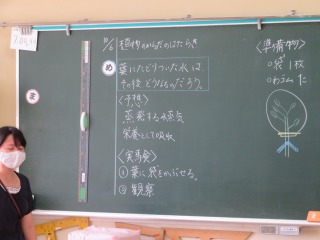 10/6 植物のからだのはたらき
め
葉にたどりついた水は
その後どうなるのだろう。
<予想>
蒸発する水蒸気
栄養として吸収
<実験>
① 葉に袋をかぶせる。
② 観察
<準備物>
○袋1枚
○わゴム
ま